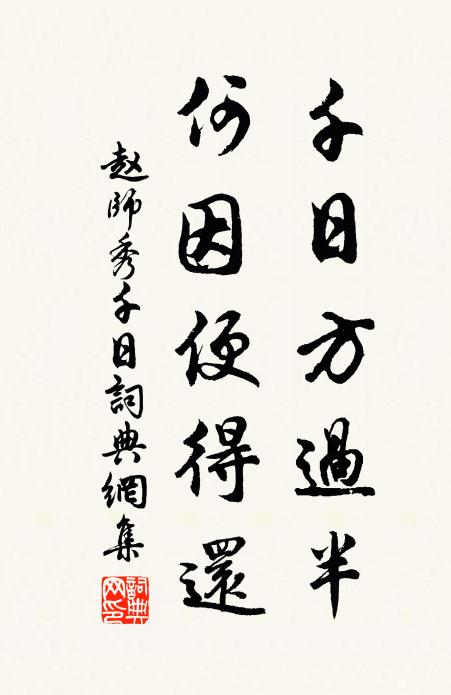 千日方過半
何因便得還
赵師秀千日詞典網集
詞典網印